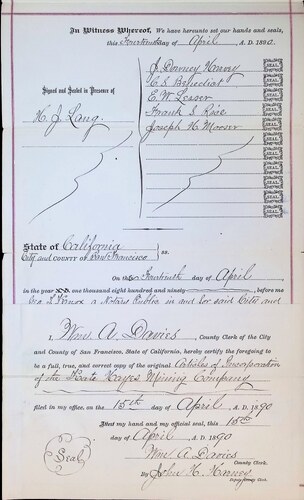 In Witness Whereof, We have hereunto set our hands and seals,
this Fourteenth day of April A. D. 1890.
J. Downey Harvey SEAL
C. S. Benedict SEAL
Signed and Sealed in Presence of
E. W. Leaser SEAL
H. J. Lang
Frank S. Rice SEAL
Joseph H. Mooser SEAL
SEAL
SEAL
SEAL
SEAL
SEAL
SEAL
State of California
City and County of San Francisco } ss.
On this Fourteenth day of April
in the year A.D. one thousand eight hundred and ninety, before me
Geo. T. Knox a Notary Public, in and for said City and
I, Wm. A. Davies, County Clerk of the City
and County of San Francisco, State of California, hereby certify the foregoing to
be a full, true, and correct copy of the original Articles of Incorporation
of the Kate Hayes Mining Company
filed in my office, on the 15th day of April, A. D. 1890
Attest my hand and my official seal, this 15th
day of April A. D. 1890
Seal
Wm. A. Davies
County Clerk.
By John H. Harney
Deputy County Clerk.